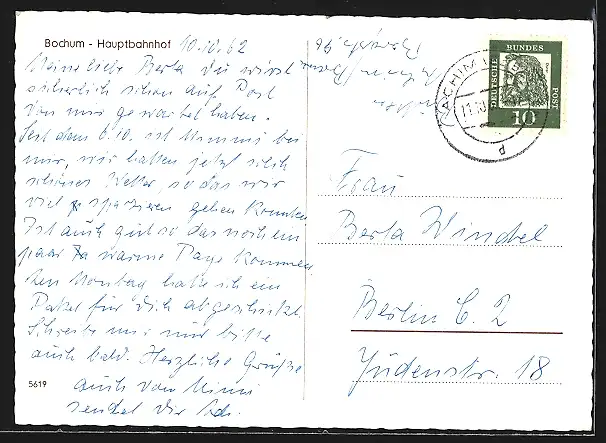 Bochum - Hauptbahnhof 10.10.62
Meine liebe Berta du wirst
sicherlich schon auf Post
von mir gewartet haben.
Seit dem 6.10. ist Mimmi bei
mir, wir hatten jetzt solch
schönes Wetter, so das wir
viel spazieren gehen konnten
Ist auch gut so das noch ein
paar warme Tage kommen
den Montag habe ich ein
Paket für Dich abgeschickt.
Schreibe mir nur bitte
auch bald. Herzliche Grüße
auch von Mimi
sendet Dir
5619
DEUTSCHE BUNDES POST
10
d
Frau
Berta Windel
Berlin C. 2
Jüdenstr. 18